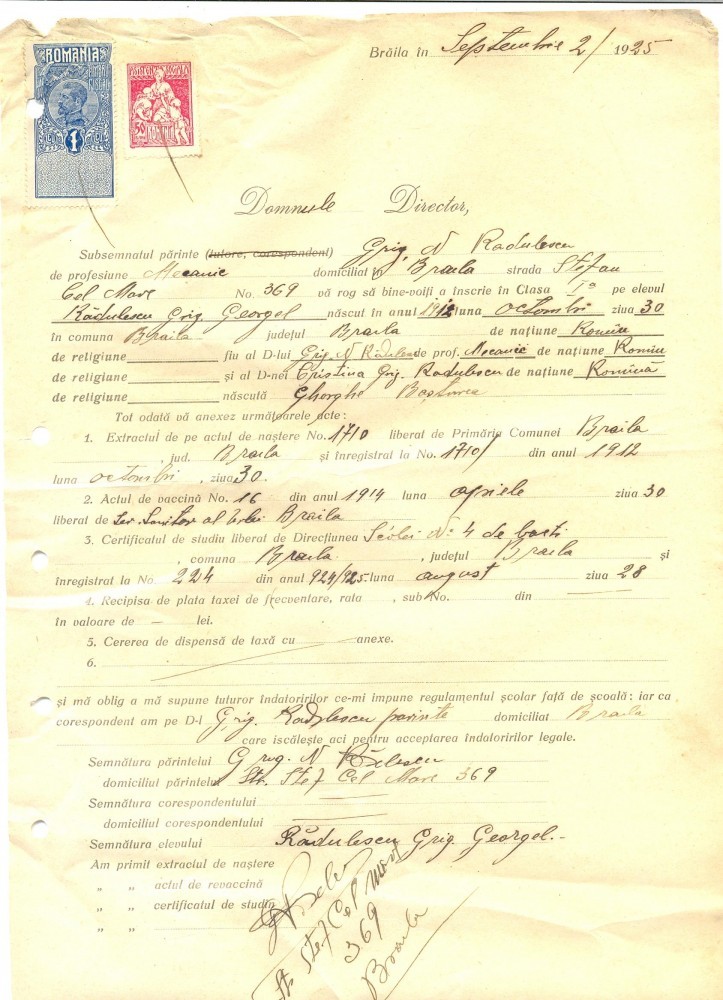 ROMANIA
1
50
Brăila în Septembrie 2/ 1925
Domnule Director,
Subsemnatul părinte (tutore, corespondent) Grig. N Radulescu
de profesiune Mecanic domiciliat în Braila strada Stefan
Cel Mare No. 369 vă rog să bine-voiți a înscrie în Clasa I-a pe elevul
Rădulescu Grig. Georgel născut în anul 1912 luna octombri ziua 30
în comuna Braila județul Braila de națiune Romîn
de religiune fiu al D-lui Grig. N Rădulescu de prof. Mecanic de națiune Romîn
de religiune și al D-nei Cristina Grig. Radulescu de națiune Romînă
de religiune născută Gheorghe
Tot odată vă anexez următoarele acte:
1. Extractul de pe actul de naștere No. 1710 liberat de Primăria Comunei Braila
, jud. Braila și înregistrat la No. 1710/ din anul 1912
luna octombri , ziua 30.
2. Actul de vaccină No. 16 din anul 1914 luna aprile ziua 30
liberat de Ser. Sanitar al Urbei Braila
3. Certificatul de studiu liberat de Direcțiunea Scólei No. 4 de baeti
, comuna Braila , județul Braila și
înregistrat la No. 224 din anul 924/925 luna august ziua 28
4. Recipisa de plata taxei de frecventare, rata , sub No. din
în valoare de — lei.
5. Cererea de dispensă de taxă cu anexe.
6.
și mă oblig a mă supune tuturor îndatoririlor ce-mi impune regulamentul școlar față de școală: iar ca
corespondent am pe D-l Grig. Radulescu parinte domiciliat Braila
care iscălește aci pentru acceptarea îndatoririlor legale.
Semnătura părintelui Grig. N
domiciliul părintelui Str. Stef Cel Mare 369
Semnătura corespondentului
domiciliul corespondentului
Semnătura elevului Rădulescu Grig. Georgel.-
Am primit extractul de naștere
„ „ actul de revaccină
„ „ certificatul de studiu
„ „
Str Stef Cel Mare
369
Braila